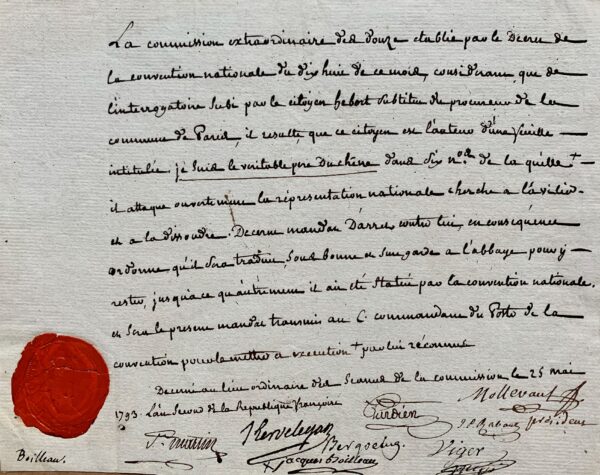 La commission extraordinaire des douze etablie par le Decret de
la convention nationale du dix huit de ce mois, considerant que de
l'interrogatoire subi par le citoyen hebert Substitut du procureur de la
commune de Paris, il resulte que ce citoyen est l'auteur d'une feuille
intitulée je suis le veritable pere Duchêne dans six n.os de la quelle +
il attaque ouvertement la réprésentation nationale cherche a l'avilir
et a la dissoudre. Decerne mandat D'arret contre lui, en conséquence
ordonne qu'il sera traduit, sous bonne et sure garde a l'abbaye pour y
rester, jusqu'a ce qu'autrement il ait été statué par la convention nationale.
et sera le present mandat transmis au C. commandant du Poste de la
convention pour le mettre a execution + par lui réconnue
Decerné au lieu ordinaire des Seances de la commission le 25 mai
1793 L'an Second de la Republique françoise
Mollevaut
président
Gardien
J.P. Rabaut
St martin
Kervelegan
Bergoeing
Viger
Jacques Boilleau
Boilleau.